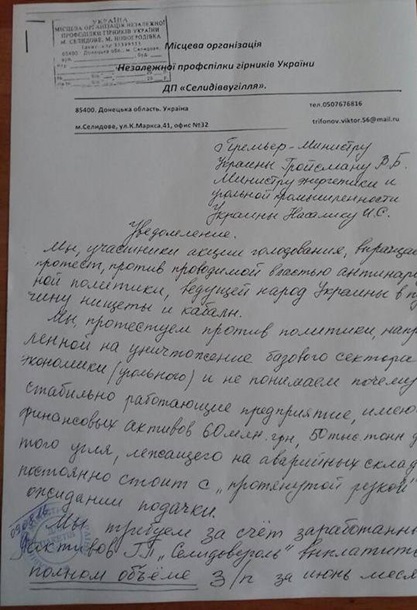 УКРАЇНА
МІСЦЕВА ОРГАНІЗАЦІЯ НЕЗАЛЕЖНОЇ
ПРОФСПІЛКИ ГІРНИКІВ УКРАЇНИ
М. СЕЛИДОВЕ, М. НОВОГРОДІВКА
85400 Донецька обл. м. Селидове,
Місцева організація
Незалежної профспілки гірників України
ДП «Селидіввугілля».
85400. Донецька область. Україна
тел.0507676816
м.Селидове, ул.К.Маркса,41, офис №32
trifonov.viktor.56@mail.ru
Премьер-Министру
Украины Гройсману В.Б.
Министру энергетики и
угольной промышленности
Украины Насалику И.С.
Уведомление.
Мы, участники акции голодования, выражаем
протест, против проводимой властью антинарод
ной политики, ведущей народ Украины в пу
чину нищеты и кабалы.
Мы, протестуем против политики, напра
ленной на уничтожение базового сектора
экономики (угольного) и не понимаем почему
стабильно работающие предприятие, имею
финансовых активов 60 млн. грн, 50 тыс тонн
того угля, лежащего на аварийных склад
постоянно стоит с "протянутой рукой" в
ожидании подачки.
Мы требуем за счёт заработанны
активов ГП "Селидовуголь" выплатить
полном объёме З/п за июнь меся